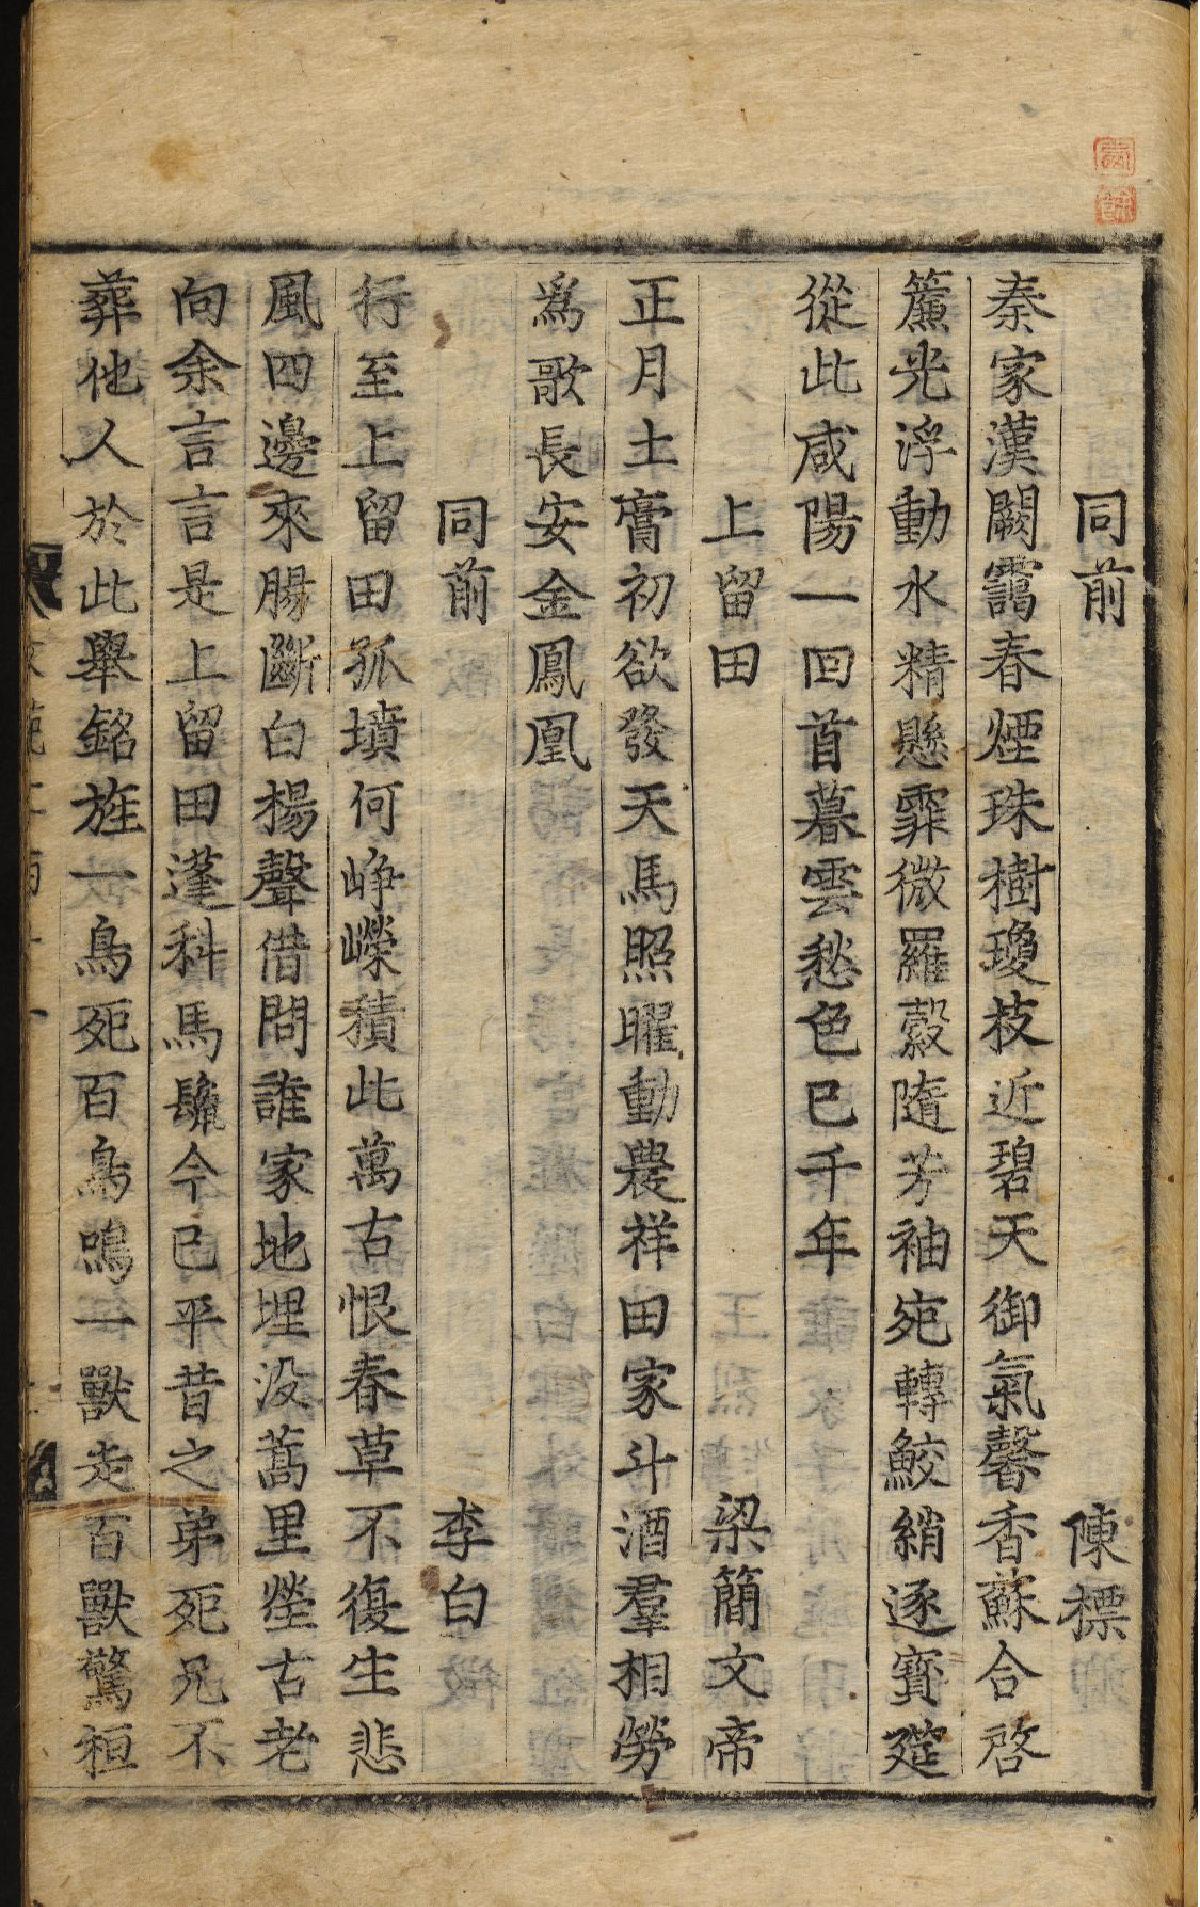 同前　陳標
秦家漢闕靄春煙珠樹瓊枝近碧天御氣馨香蘇合啓
簾光浮動水精懸霏微羅縠隨芳袖宛轉鮫綃逐寳筵
從此咸陽一回首暮雲愁色已千年
上留田　梁簡文帝
正月土膏初欲發天馬照曜動農祥田家斗酒羣相勞
爲歌長安金鳳凰
同前　李白
行至上留田孤墳何崢嶸積此萬古恨春草不復生悲
風四邊來腸斷白楊聲借問誰家地埋没蒿里塋古老
向余言言是上留田蓬科馬鬛今已平昔之弟死兄不
葬他人於此舉銘旌一鳥死百鳥鳴一獸走百獸驚桓